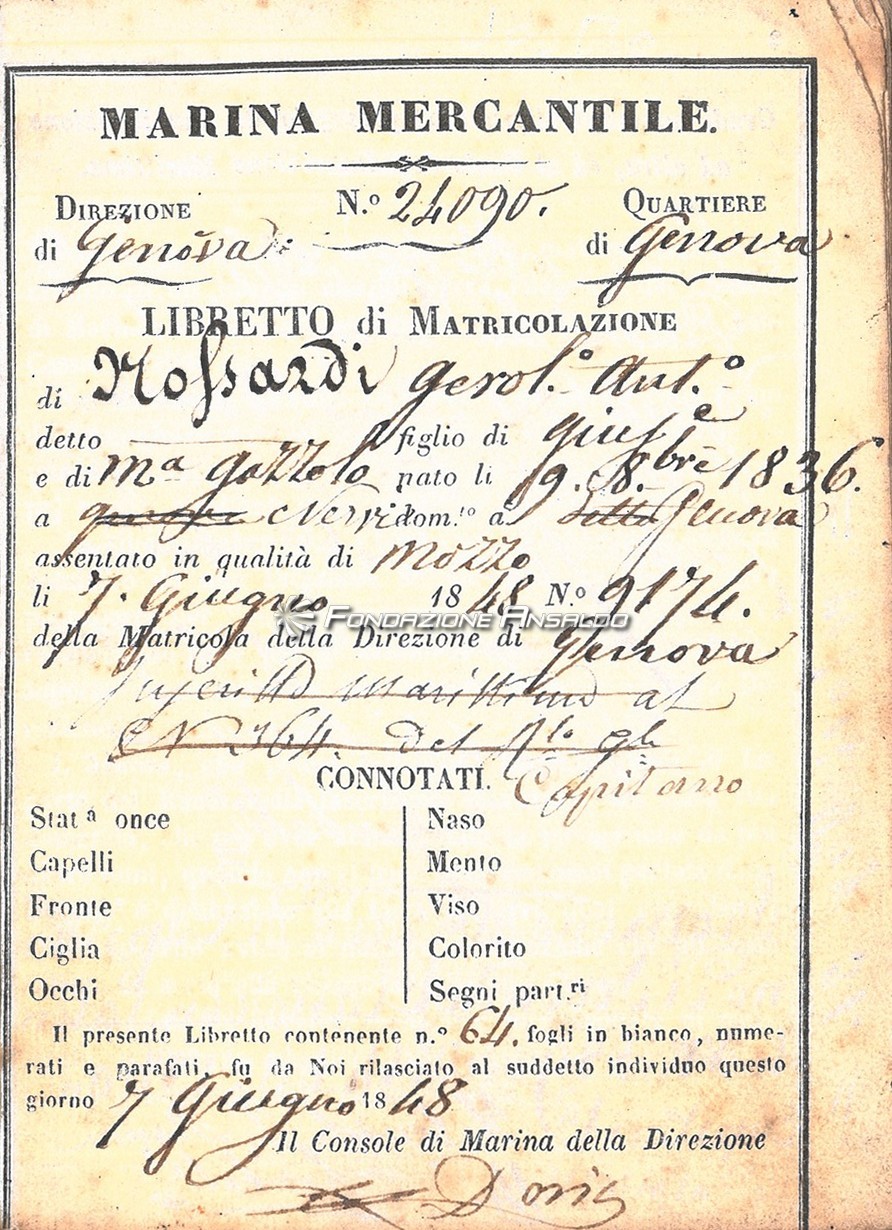 MARINA MERCANTILE.
DIREZIONE N.º 24090. QUARTIERE
di Genova di Genova
LIBRETTO di MATRICOLAZIONE
di Rossardi Gerol.º Ant.º
detto figlio di Gius.e
e di Ma Gozzolo nato li 9. 8.bre 1836.
a Nervi dom.to a Genova
assentato in qualità di Mozzo
li 7. Giugno 1848 N.º 9174.
FONDAZIONE ANSALDO
della Matricola della Direzione di Genova
al
N 364. del
CONNOTATI. Capitano
Stat.a once Naso
Capelli Mento
Fronte Viso
Ciglia Colorito
Occhi Segni part.ri
Il presente Libretto contenente n.º 64. fogli in bianco, nume-
rati e parafati, fu da Noi rilasciato al suddetto individuo questo
giorno 7 Giugno 1848
Il Console di Marina della Direzione